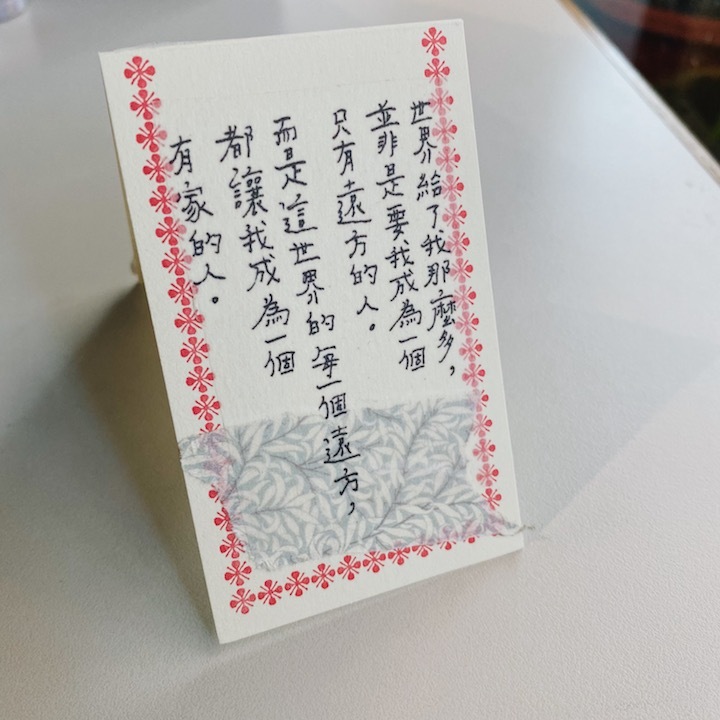 世界給了我那麼多，
並非是要我成為一個
只有遠方的人。
而是這世界的每一個遠方，
都讓我成為一個
有家的人。